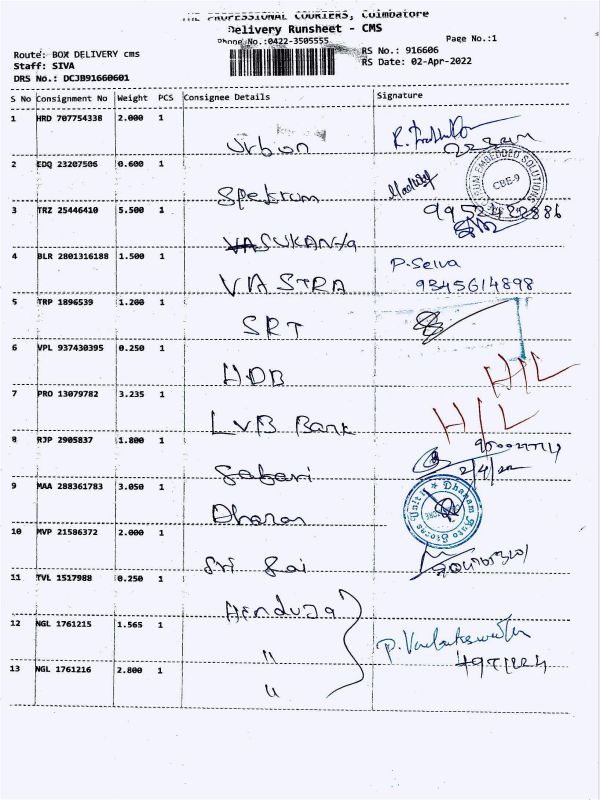 THE PROFESSIONAL COURIERS, Coimbatore
Delivery Runsheet - CMS
Phone No.:0422-3505555 Page No.:1
Route: BOX DELIVERY cms RS No.: 916606
Staff: SIVA RS Date: 02-Apr-2022
DRS No.: DCJB91660601
S No Consignment No Weight PCS Consignee Details Signature
1 HRD 707754338 2.000 1
Urban
2 EDQ 23207506 0.600 1
Spektrum
3 TRZ 25446410 5.500 1
SUKANYA
4 BLR 2801316188 1.500 1 P. Selva
VASTRA 9345614898
5 TRP 1896539 1.200 1
SRT
6 VPL 937430395 0.250 1
HDB H/L
7 PRO 13079782 3.235 1
LVB Bank H/L
8 RJP 2905837 1.800 1
Safari 2/4/22
9 MAA 288361783 3.050 1
Dharan
10 MVP 21586372 2.000 1
Sri Sai
11 TVL 1517988 0.250 1
Hinduja
12 NGL 1761215 1.565 1
"
13 NGL 1761216 2.800 1
"
EMBEDDED SOLUTIONS
CBE-9